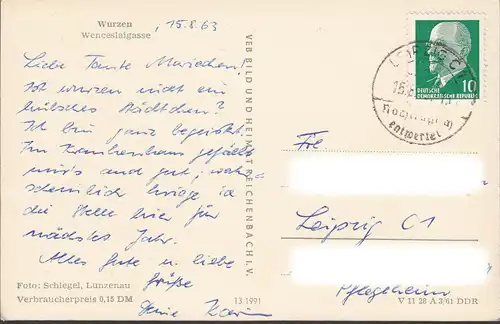 Wurzen
Wenceslaigasse , 15.8.63
Liebe Tante Mariechen!
Ist Wurzen nicht ein
hübsches Städtchen?
Ich bin ganz begeistert.
Im Krankenhaus gefällt
mir's auch gut, wahr-
scheinlich kriege ich
die Stelle hier für
nächstes Jahr.
Alles Gute u. liebe
Grüße
Deine Karin
Foto: Schlegel, Lunzenau
Verbraucherpreis 0,15 DM
13 1991
VEB BILD UND HEIMAT REICHENBACH I. V.
LEIPZIG C
nachträglich
entwertet
DEUTSCHE
DEMOKRATISCHE REPUBLIK
10
Frl.
Leipzig C1
Pflegeheim
V 11 28 A 3/61 DDR